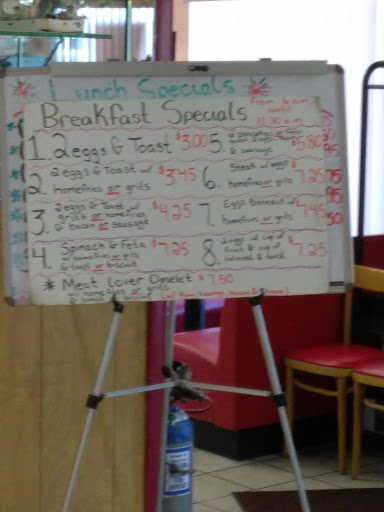 Lunch Specials
Breakfast Specials
From 6 a.m.
until
11:30 a.m.
1. 2 eggs & Toast $3.00
2. 2 eggs & Toast w/ $3.45
homefries or grits
3. 2 eggs & Toast w/ $4.25
grits or homefries
& bacon or sausage
4. Spinach & Feta $7.25
w/ homefries or grits
& toast or biscuit
5. 2 pancakes or $5.80
& sausage
6. Steak w/ eggs $7.25
homefries or grits
7. Eggs Benedict w/ $7.45
homefries or grits
8. 2 eggs w/ cup of $7.25
fruit & cup of
oatmeal & toast
* Meat Lover Omelet $7.50
w/ homefries or grits
& toast or biscuit